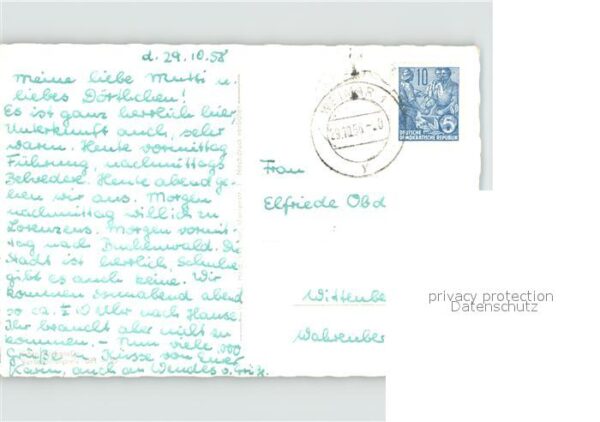 d. 29.10.58
Meine liebe Mutti u.
liebes Dörthchen!
Es ist ganz herrlich hier,
Unterkunft auch, sehr
warm. Heute vormittag
Führung, nachmittags
Belvedere. Heute abend ge-
hen wir aus. Morgen
nachmittag will ich zu
Lorenzens. Morgen vormit-
tag nach Buchenwald. Die
Stadt ist herrlich, Schuhe
gibt es auch keine. Wir
kommen Sonnabend abend
so ca. 10 Uhr nach Hause.
Ihr braucht aber nicht zu
kommen. - Nun viele 1000
Grüße u. Küsse von Eurer
Karin, auch an Wendes u.
WEIMAR 1
29.10.58
10
DEUTSCHE
DEMOKRATISCHE REPUBLIK
5
Frau
Elfriede Obd
Wittenbe
Wahrenber
privacy protection
Datenschutz